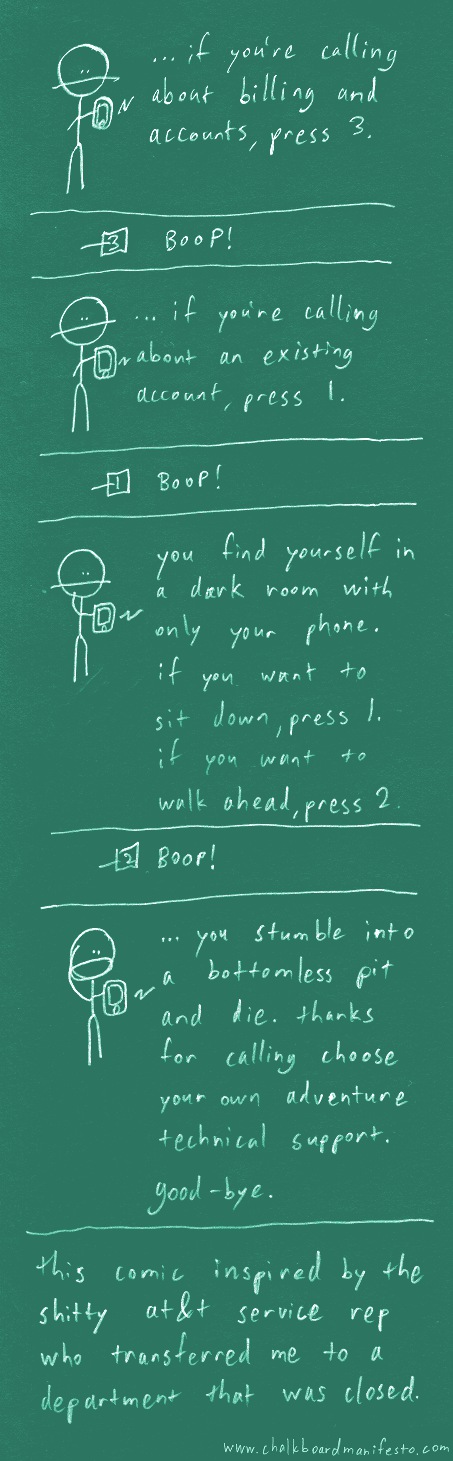 ... if you're calling
about billing and
accounts, press 3.
3 BOOP!
... if you're calling
about an existing
account, press 1.
1 BOOP!
you find yourself in
a dark room with
only your phone.
if you want to
sit down, press 1.
if you want to
walk ahead, press 2.
2 BOOP!
... you stumble into
a bottomless pit
and die. thanks
for calling choose
your own adventure
technical support.
good-bye.
this comic inspired by the
shitty at&t service rep
who transferred me to a
department that was closed.
www.chalkboardmanifesto.com